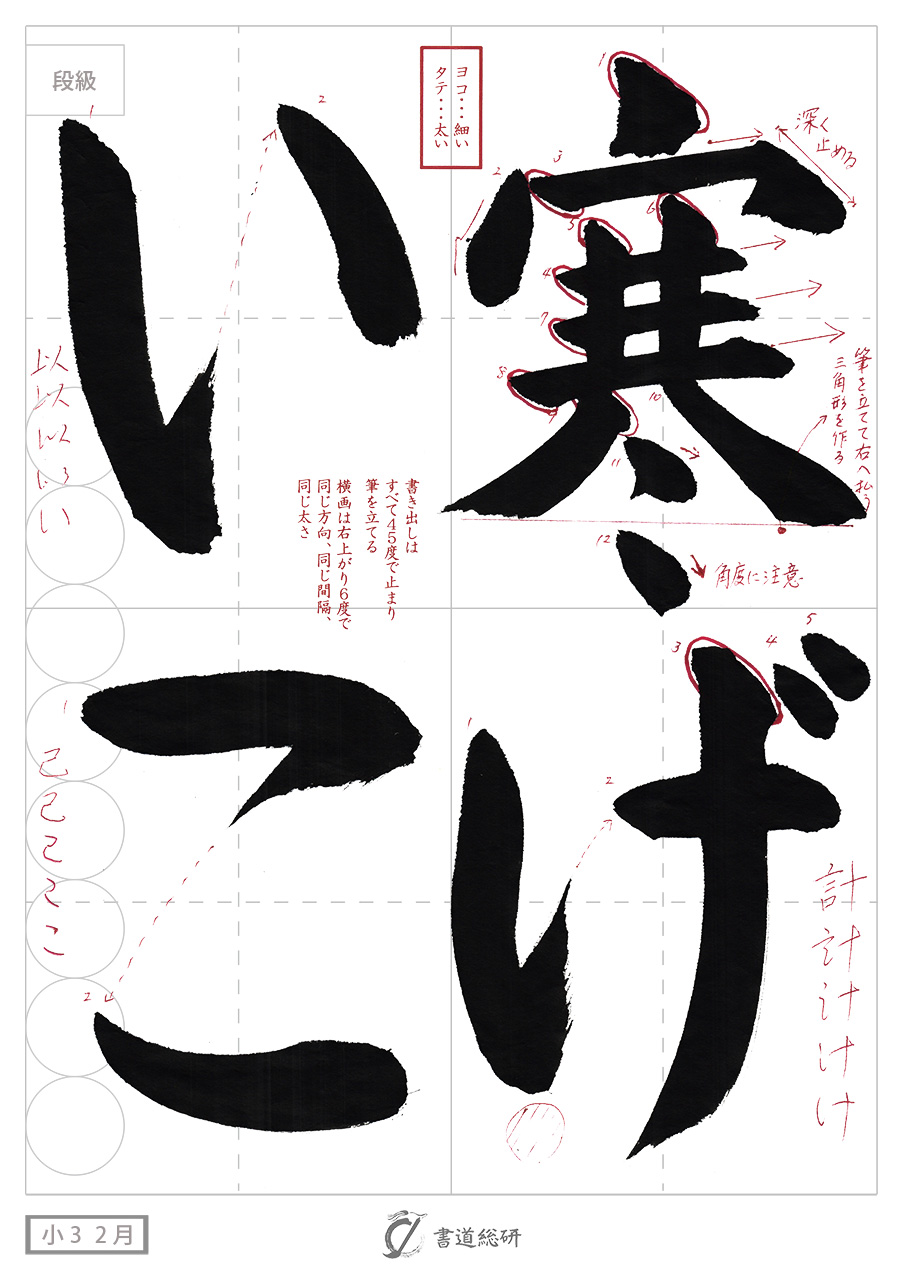 寒げ
いこ
ヨコ・・・細い
タテ・・・太い
深く
止める
筆を立てて右へ払う
三角形を作る
角度に注意
書き出しは
すべて45度で止まり
筆を立てる
横画は右上がり6度で
同じ方向、同じ間隔、
同じ太さ
計計计けけ
以以い
己己こ
段級
小3 2月
書道総研